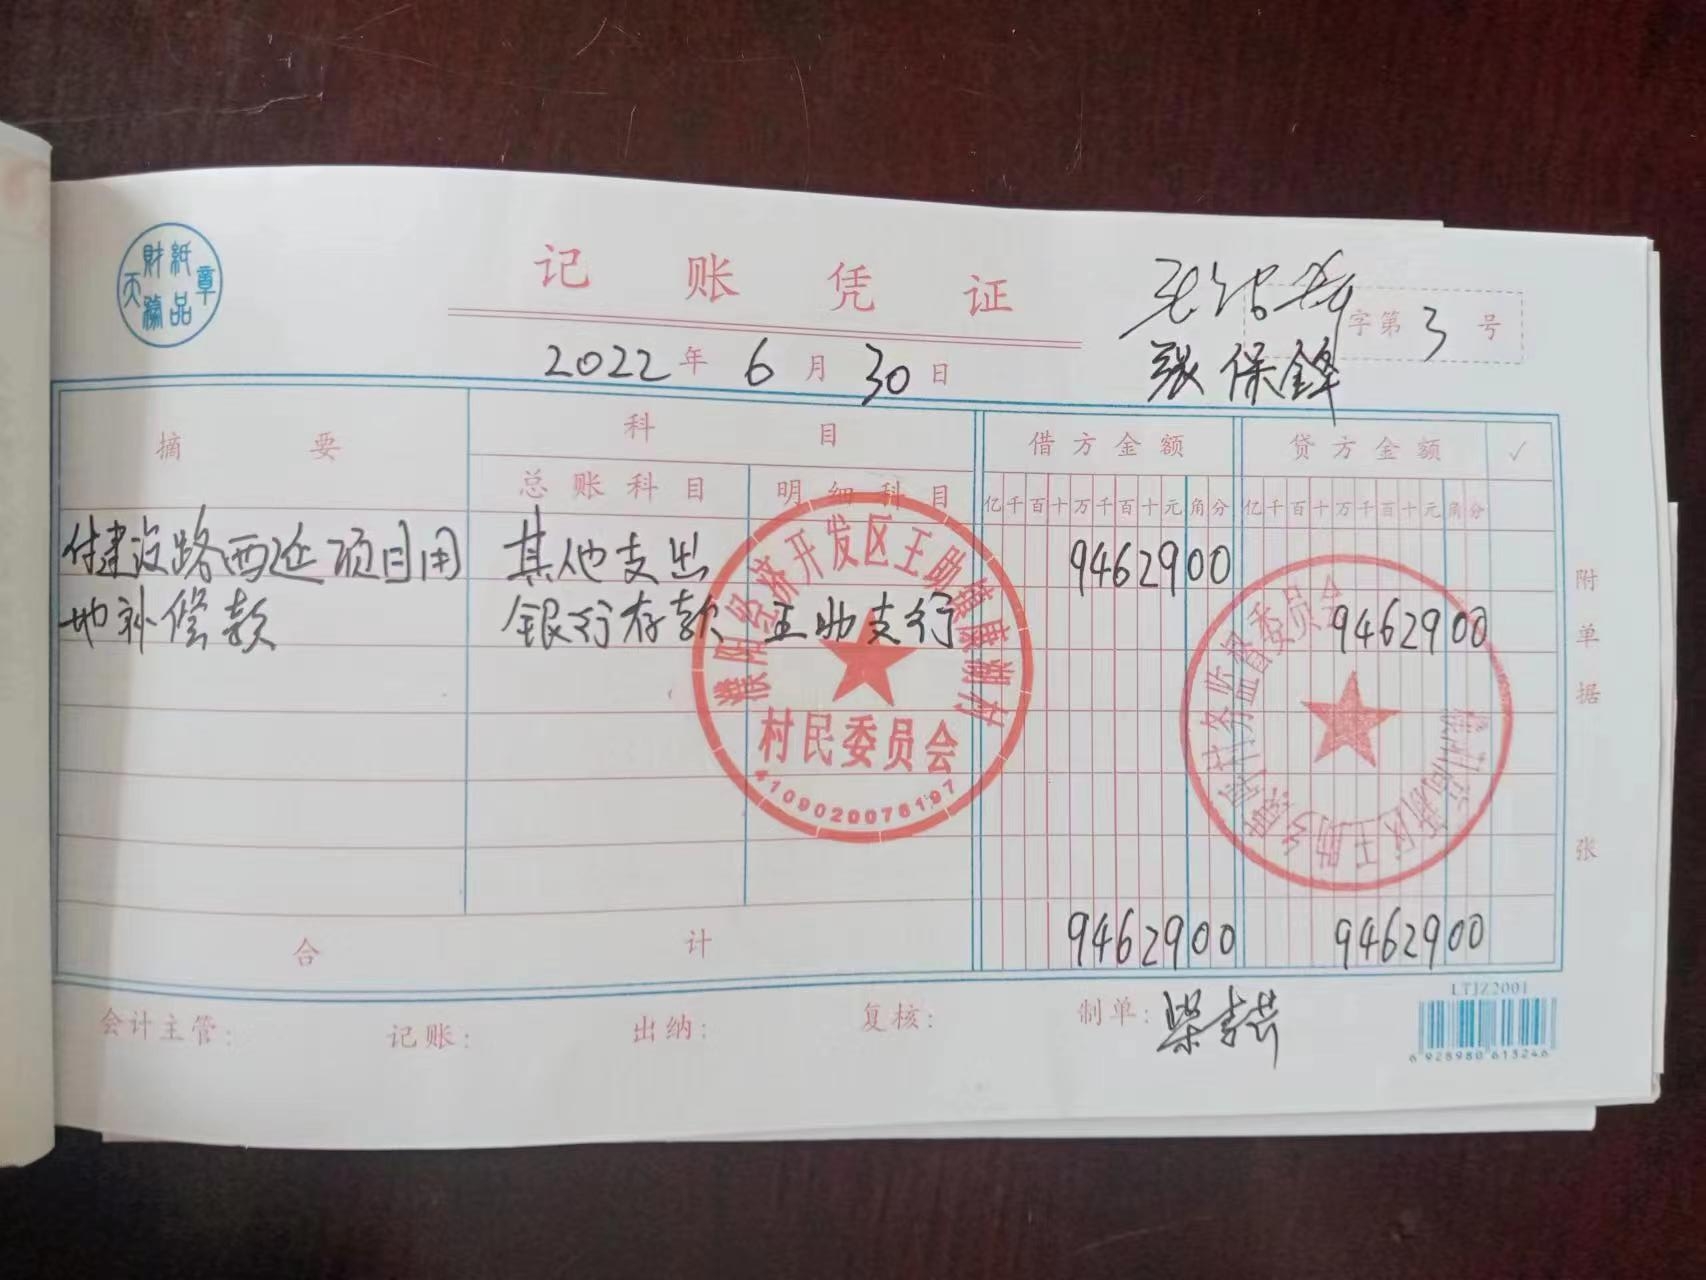 財紙
天瀛品章
记账凭证
字第3号
2022年6月30日
张保锋
摘要
科目
借方金额
贷方金额
✓
总账科目
明细科目
亿千百十万千百十元角分
亿千百十万千百十元角分
付建设路西延项目用
其他支出
9462900
地补偿款
银行存款
王助支行
9462900
濮阳经济开发区王助镇康湖村
村民委员会
4109020076197
村务监督委员会
附单据
张
合计
9462900
9462900
会计主管:
记账:
出纳:
复核:
制单:
LTJZ2001
6 928980 613246